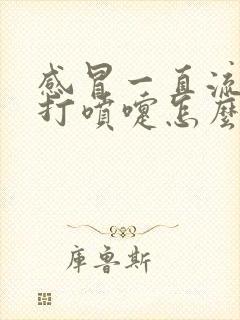 感冒一直流
打噴嚏怎麼
庫魯斯